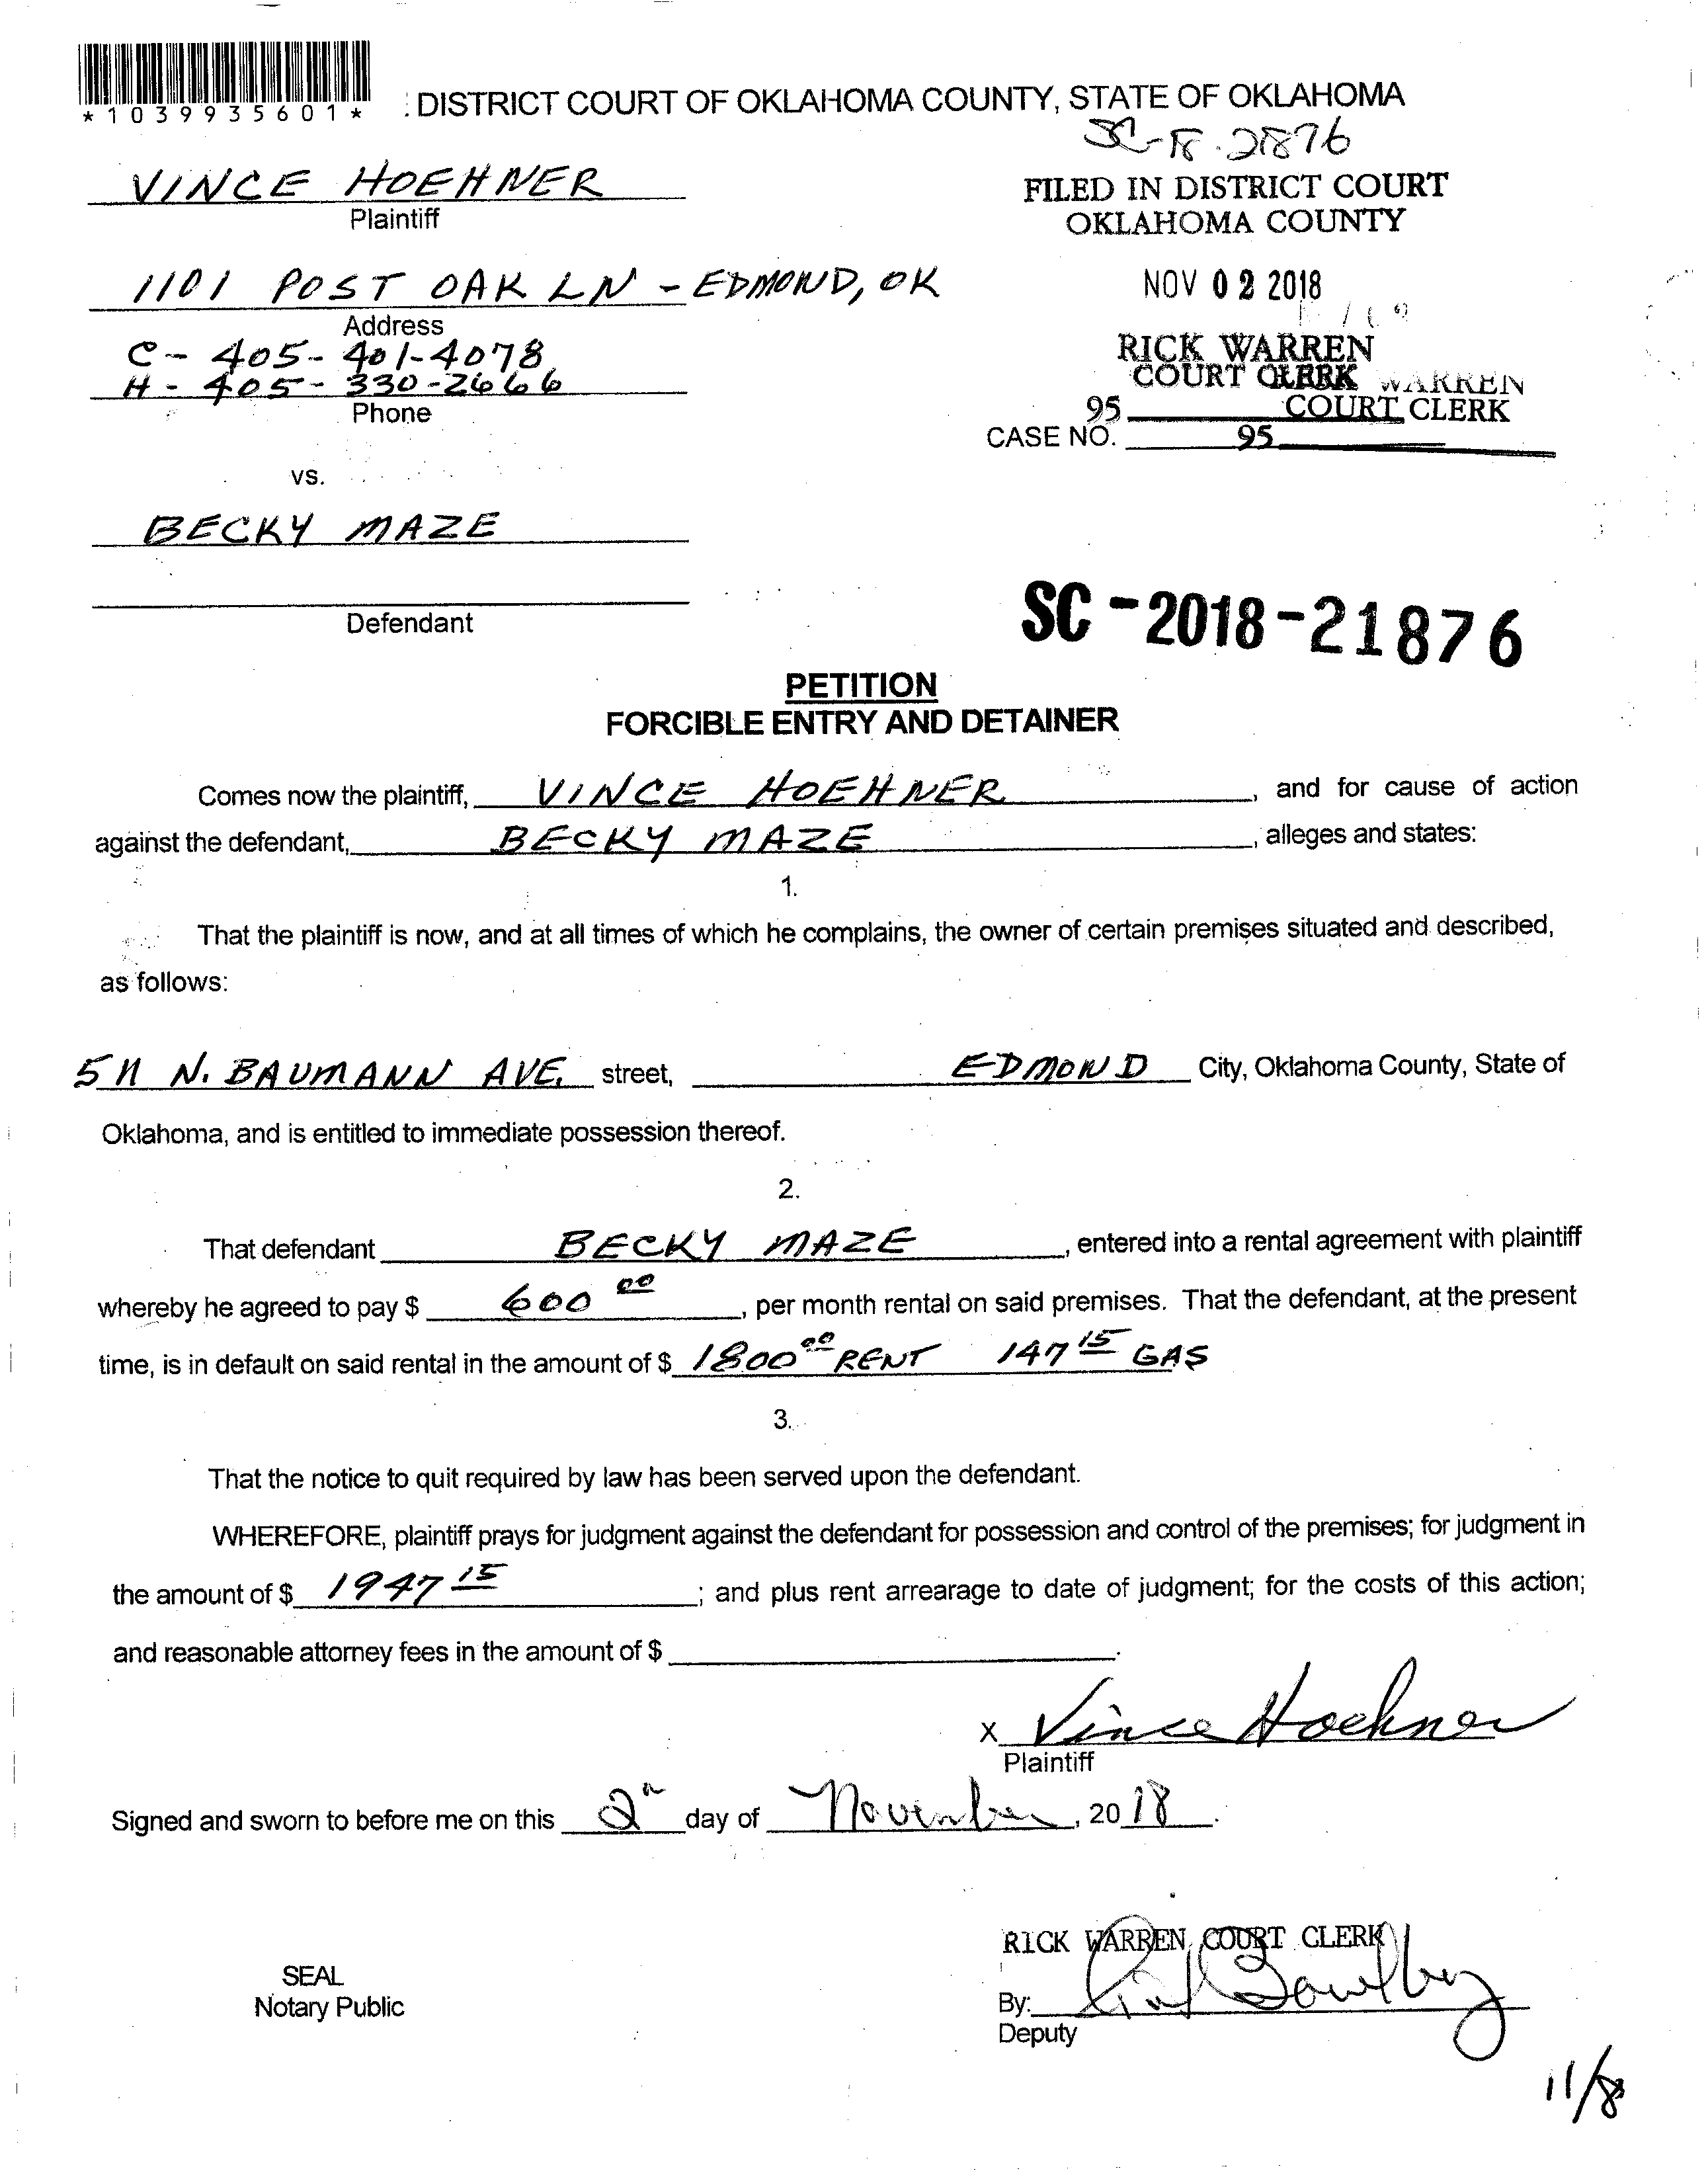 *1039935601*
: DISTRICT COURT OF OKLAHOMA COUNTY, STATE OF OKLAHOMA
VINCE HOEHNER
Plaintiff
FILED IN DISTRICT COURT
OKLAHOMA COUNTY
1101 POST OAK LN - EDMOND, OK
Address
NOV 02 2018
C - 405-401-4078
H - 405-330-2666
Phone
RICK WARREN
COURT CLERK WARREN
95 COURT CLERK
CASE NO. 95
vs.
BECKY MAZE
Defendant
SC-2018-21876
PETITION
FORCIBLE ENTRY AND DETAINER
Comes now the plaintiff, VINCE HOEHNER, and for cause of action
against the defendant, BECKY MAZE, alleges and states:
1.
That the plaintiff is now, and at all times of which he complains, the owner of certain premises situated and described,
as follows:
511 N. BAUMANN AVE. street, EDMOND City, Oklahoma County, State of
Oklahoma, and is entitled to immediate possession thereof.
2.
That defendant BECKY MAZE, entered into a rental agreement with plaintiff
whereby he agreed to pay $ 600 00, per month rental on said premises. That the defendant, at the present
time, is in default on said rental in the amount of $ 1800 00 RENT 147 15 GAS
3.
That the notice to quit required by law has been served upon the defendant.
WHEREFORE, plaintiff prays for judgment against the defendant for possession and control of the premises; for judgment in
the amount of $ 1947 15; and plus rent arrearage to date of judgment; for the costs of this action;
and reasonable attorney fees in the amount of $ .
X Vince Hoehner
Plaintiff
Signed and sworn to before me on this 2n day of November, 20 18.
RICK WARREN, COURT CLERK
SEAL
Notary Public
By:
Deputy
11/8